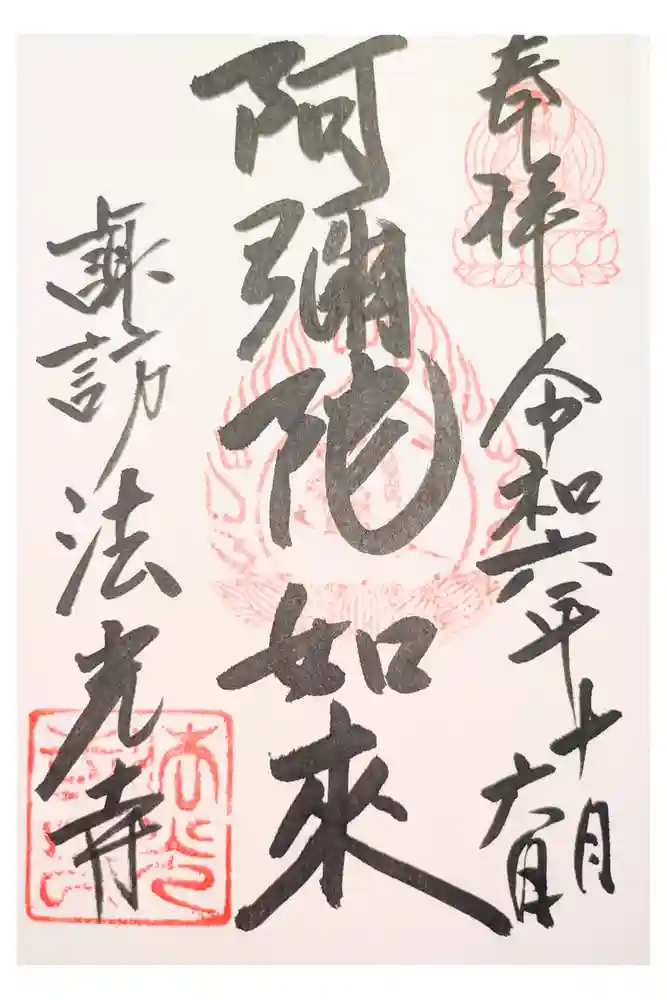 奉拝
令和六年十月
六日
阿彌陀如來
諏訪法光寺